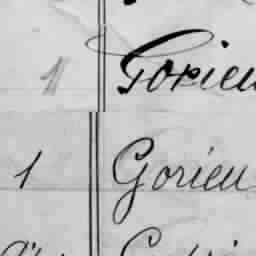 1 Gorieu
1 Gorieu